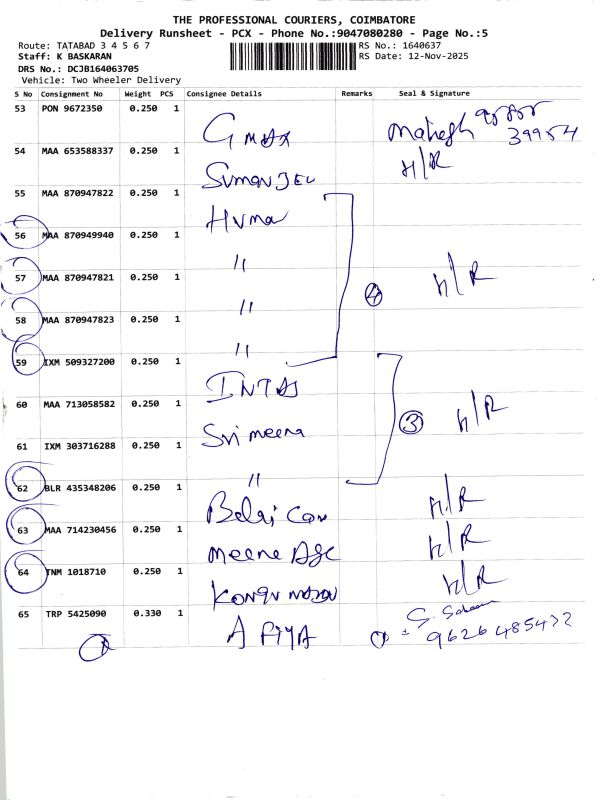 THE PROFESSIONAL COURIERS, COIMBATORE
Delivery Runsheet - PCX - Phone No.:9047080280 - Page No.:5
Route: TATABAD 3 4 5 6 7 RS No.: 1640637
Staff: K BASKARAN RS Date: 12-Nov-2025
DRS No.: DCJB164063705
Vehicle: Two Wheeler Delivery
S No Consignment No Weight PCS Consignee Details Remarks Seal & Signature
53 PON 9672350 0.250 1 Gmax Mahesh
39954
54 MAA 653588337 0.250 1 H/R
55 MAA 870947822 0.250 1 Huma
56 MAA 870949940 0.250 1 "
57 MAA 870947821 0.250 1 " 4 H/R
58 MAA 870947823 0.250 1 "
59 IXM 509327200 0.250 1 INTAS
60 MAA 713058582 0.250 1 Sri meena 3 H/R
61 IXM 303716288 0.250 1 "
62 BLR 435348206 0.250 1 H/R
63 MAA 714230456 0.250 1 Meena H/R
64 TNM 1018710 0.250 1 H/R
65 TRP 5425090 0.330 1 1
9626485422